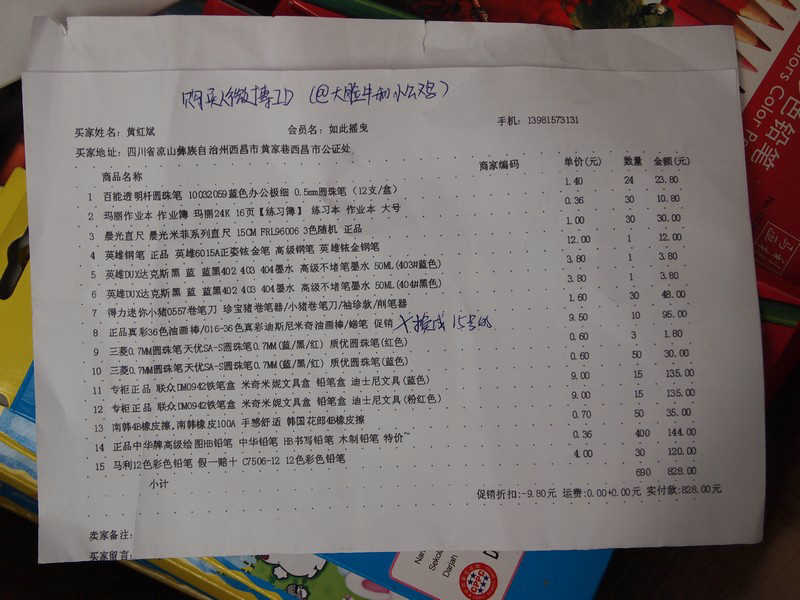 购买人微博ID (@大脸牛和小公鸡)
买家姓名: 黄红斌 会员名: 如此摇曳 手机: 13981573131
买家地址: 四川省凉山彝族自治州西昌市黄家巷西昌市公证处
商品名称 商家编码 单价(元) 数量 金额(元)
1 百能透明杆圆珠笔 10032059蓝色办公极细 0.5mm圆珠笔 (12支/盒) 1.40 24 23.80
2 玛丽作业本 作业簿 玛丽24K 16页【练习簿】 练习本 作业本 大号 0.36 30 10.80
3 晨光直尺 晨光米菲系列直尺 15CM FRL96006 3色随机 正品 1.00 30 30.00
4 英雄钢笔 正品 英雄6015A正姿铱金笔 高级钢笔 英雄铱金钢笔 12.00 1 12.00
5 英雄DUX达克斯黑 蓝 蓝黑402 403 404墨水 高级不堵笔墨水 50ML(403#蓝色) 3.80 1 3.80
6 英雄DUX达克斯黑 蓝 蓝黑402 403 404墨水 高级不堵笔墨水 50ML(404#黑色) 3.80 1 3.80
7 得力迷你小猪0557卷笔刀 珍宝猪卷笔器/小猪卷笔刀/袖珍款/削笔器 1.60 30 48.00
8 正品真彩36色油画棒/016-36色真彩迪斯尼米奇油画棒/蜡笔 促销 9.50 10 95.00
9 三菱0.7MM圆珠笔天优SA-S圆珠笔0.7MM(蓝/黑/红) 质优圆珠笔(红色) 0.60 3 1.80
10 三菱0.7MM圆珠笔天优SA-S圆珠笔0.7MM(蓝/黑/红) 质优圆珠笔(蓝色) 0.60 50 30.00
11 专柜正品 联众DM0942铁笔盒 米奇米妮文具盒 铅笔盒 迪士尼文具(蓝色) 9.00 15 135.00
12 专柜正品 联众DM0942铁笔盒 米奇米妮文具盒 铅笔盒 迪士尼文具(粉红色) 9.00 15 135.00
13 南韩4B橡皮擦,南韩橡皮100A 手感舒适 韩国花郎4B橡皮擦 0.70 50 35.00
14 正品中华牌高级绘图HB铅笔 中华铅笔 HB书写铅笔 木制铅笔 特价~ 0.36 400 144.00
15 马利12色彩色铅笔 假一赔十 C7506-12 12色彩色铅笔 4.00 30 120.00
小计 690 828.00
促销折扣:-9.80元 运费:0.00+0.00元 实付款:828.00元
卖家备注:
买家留言: